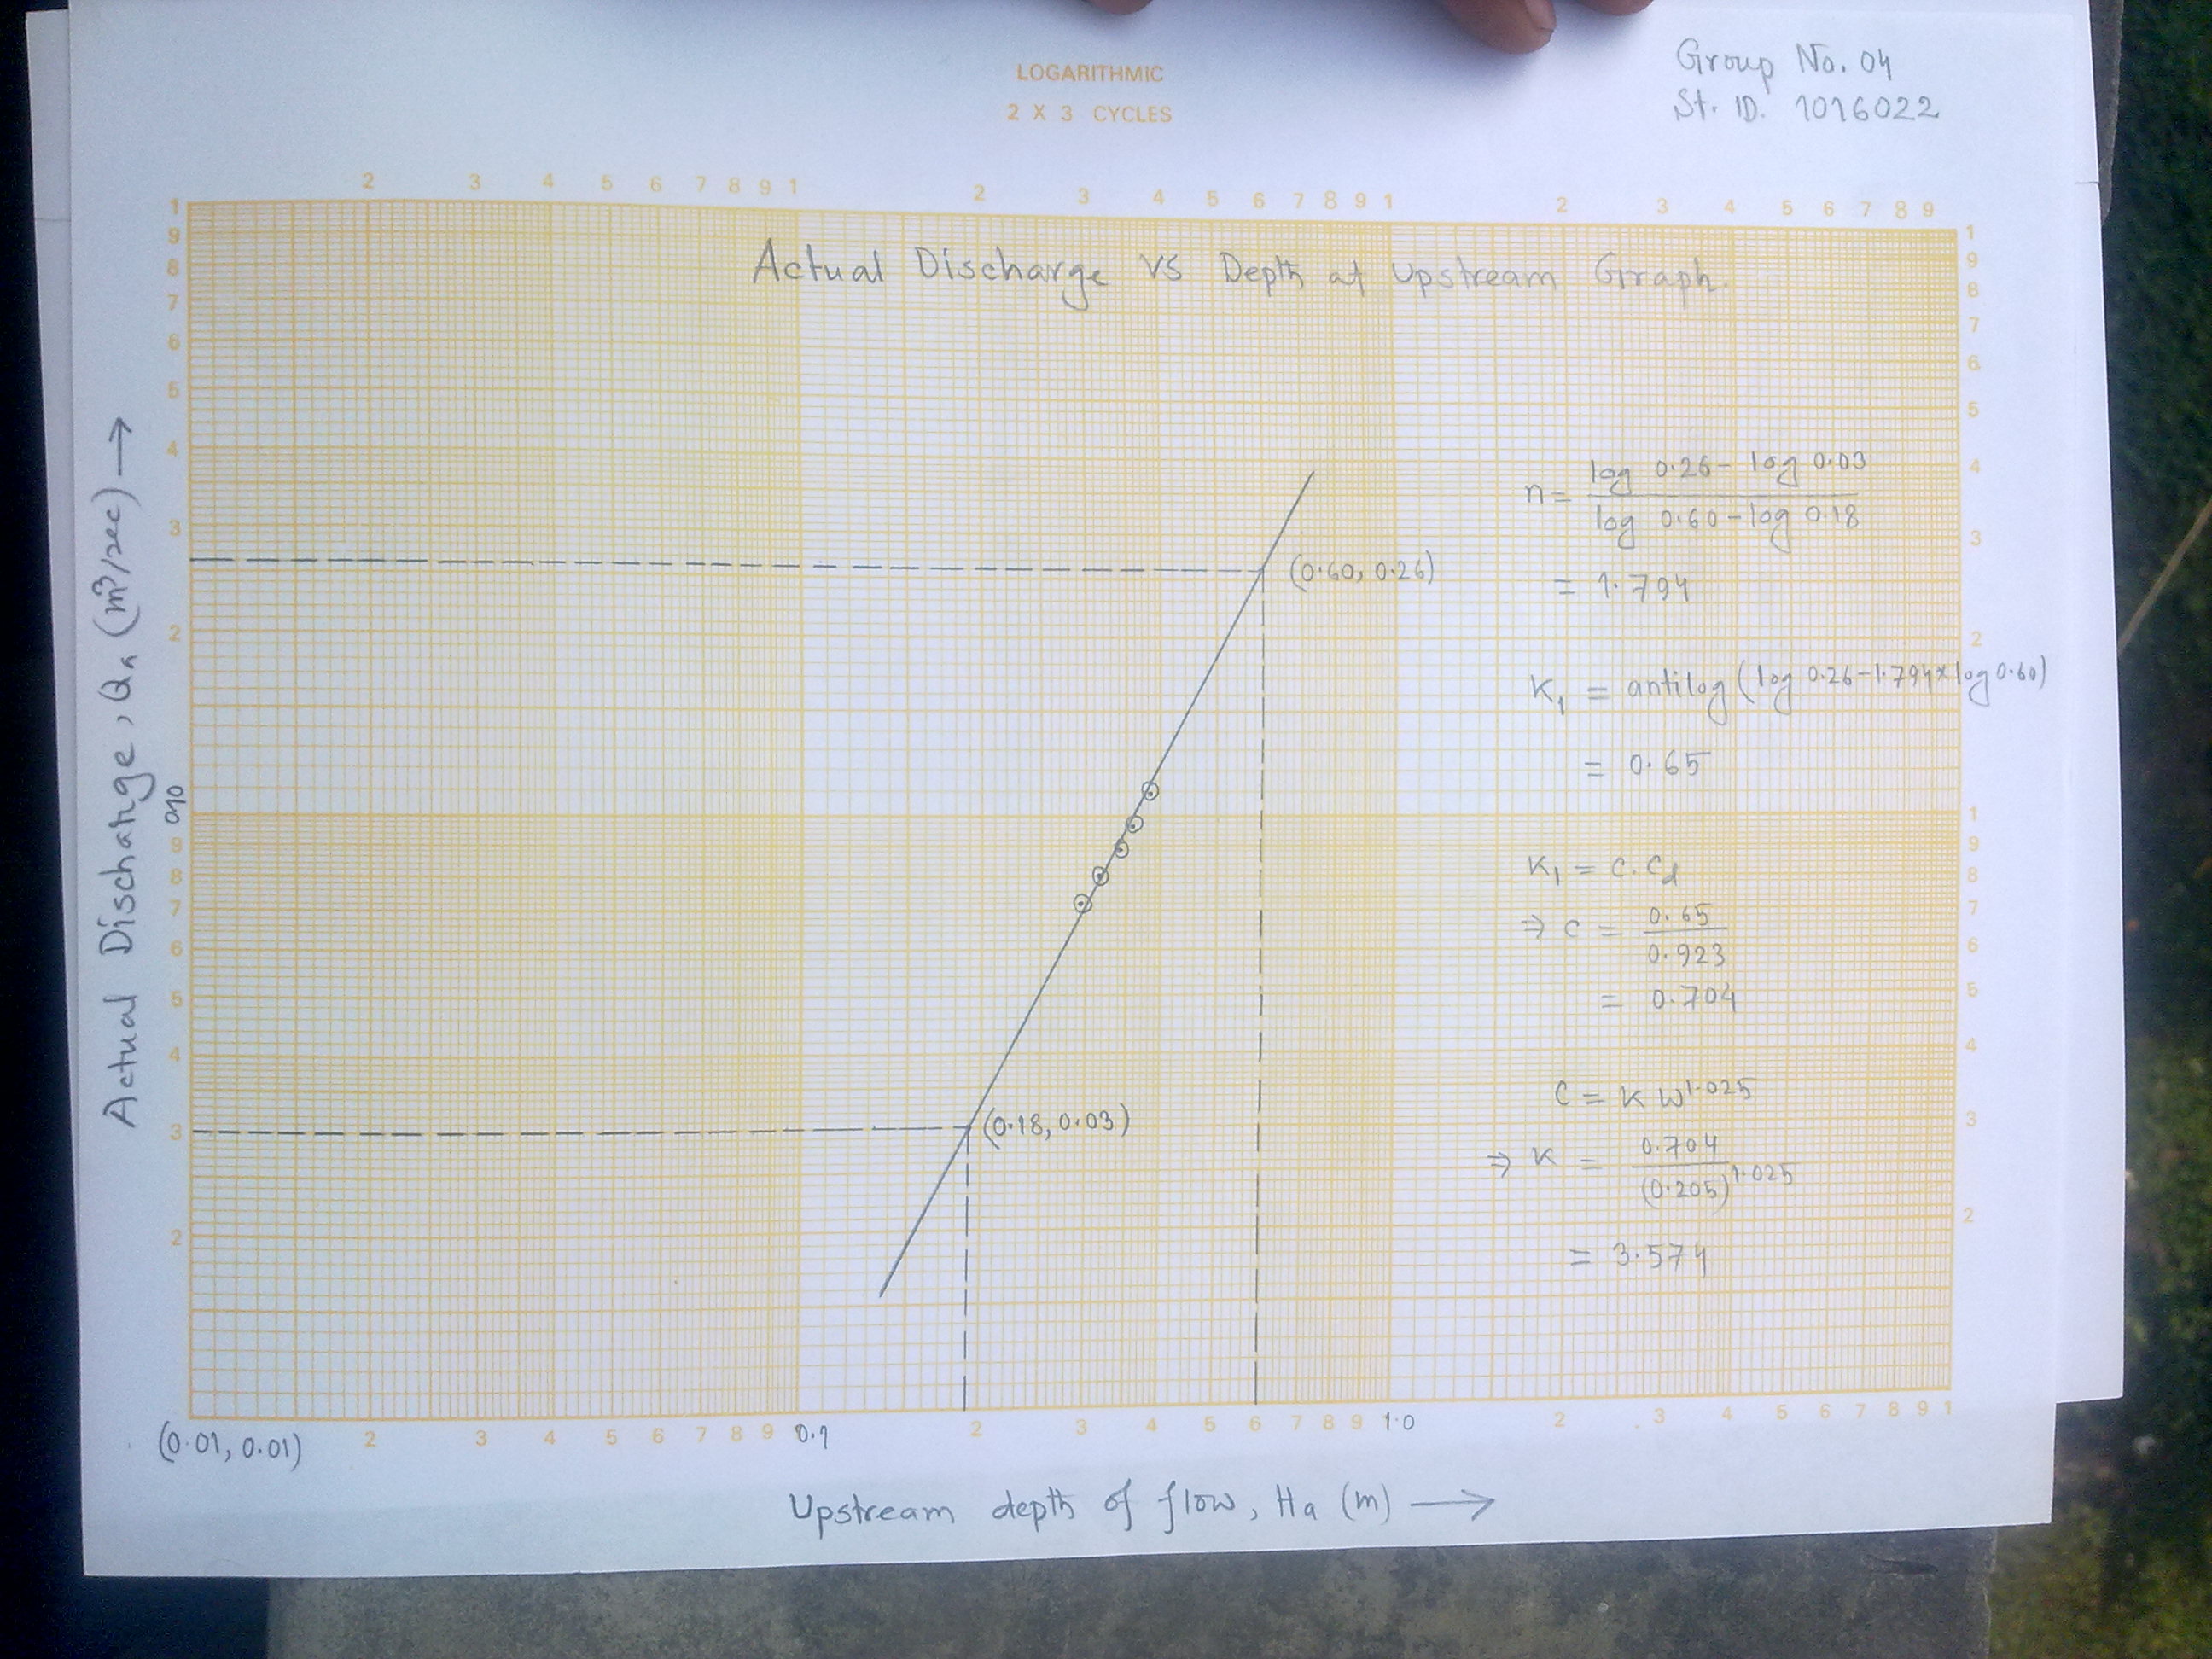 LOGARITHMIC
2 X 3 CYCLES
Group No. 04
St. ID. 1016022
2 3 4 5 6 7 8 9 1 2 3 4 5 6 7 8 9 1 2 3 4 5 6 7 8 9
Actual Discharge vs Depth at Upstream Graph.
1
9
8
7
6
5
4
3
2
0.10
9
8
7
6
5
4
3
2
Actual Discharge, Qa (m³/sec) →
(0.60, 0.26)
(0.18, 0.03)
n = log 0.26 - log 0.03 / log 0.60 - log 0.18
= 1.794
K₁ = antilog (log 0.26 - 1.794 × log 0.60)
= 0.65
K₁ = C. Cd
⇒ C = 0.65 / 0.923
= 0.704
C = K W^1.025
⇒ K = 0.704 / (0.205)^1.025
= 3.574
1
9
8
7
6
5
4
3
2
1
9
8
7
6
5
4
3
2
(0.01, 0.01) 2 3 4 5 6 7 8 9 0.1 2 3 4 5 6 7 8 9 1.0 2 3 4 5 6 7 8 9 1
Upstream depth of flow, Ha (m) →